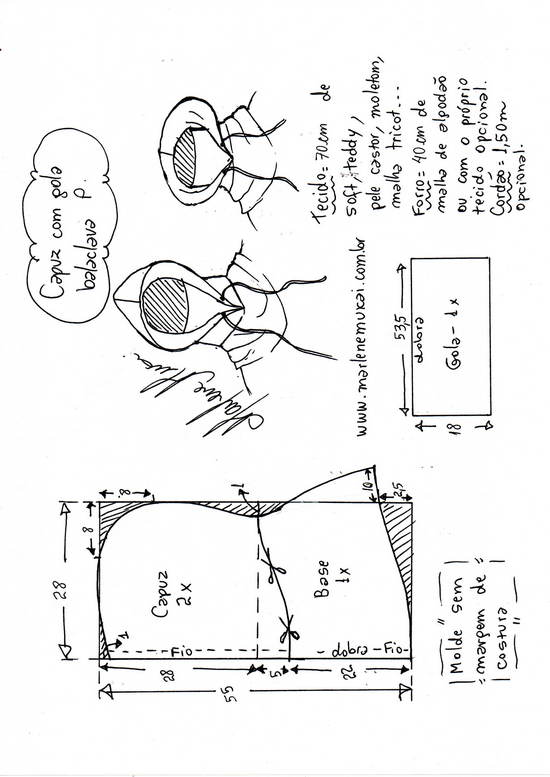 Capuz com gola
balaclava P.
Marlene Mukai
www.marlenemukai.com.br
Tecido = 70cm de
soft, teddy,
pele castor, moletom,
malha tricot...
Forro = 40 cm de
malha de algodão
ou com o próprio
tecido opcional.
Cordão = 1,50m
opcional.
28
8
8
1
Capuz
2x
Fio
1
Base
1x
dobra - Fio
10
2,5
28
5
22
55
53,5
dobra
Gola - 1x
18
Molde "sem"
= margem de =
costura "